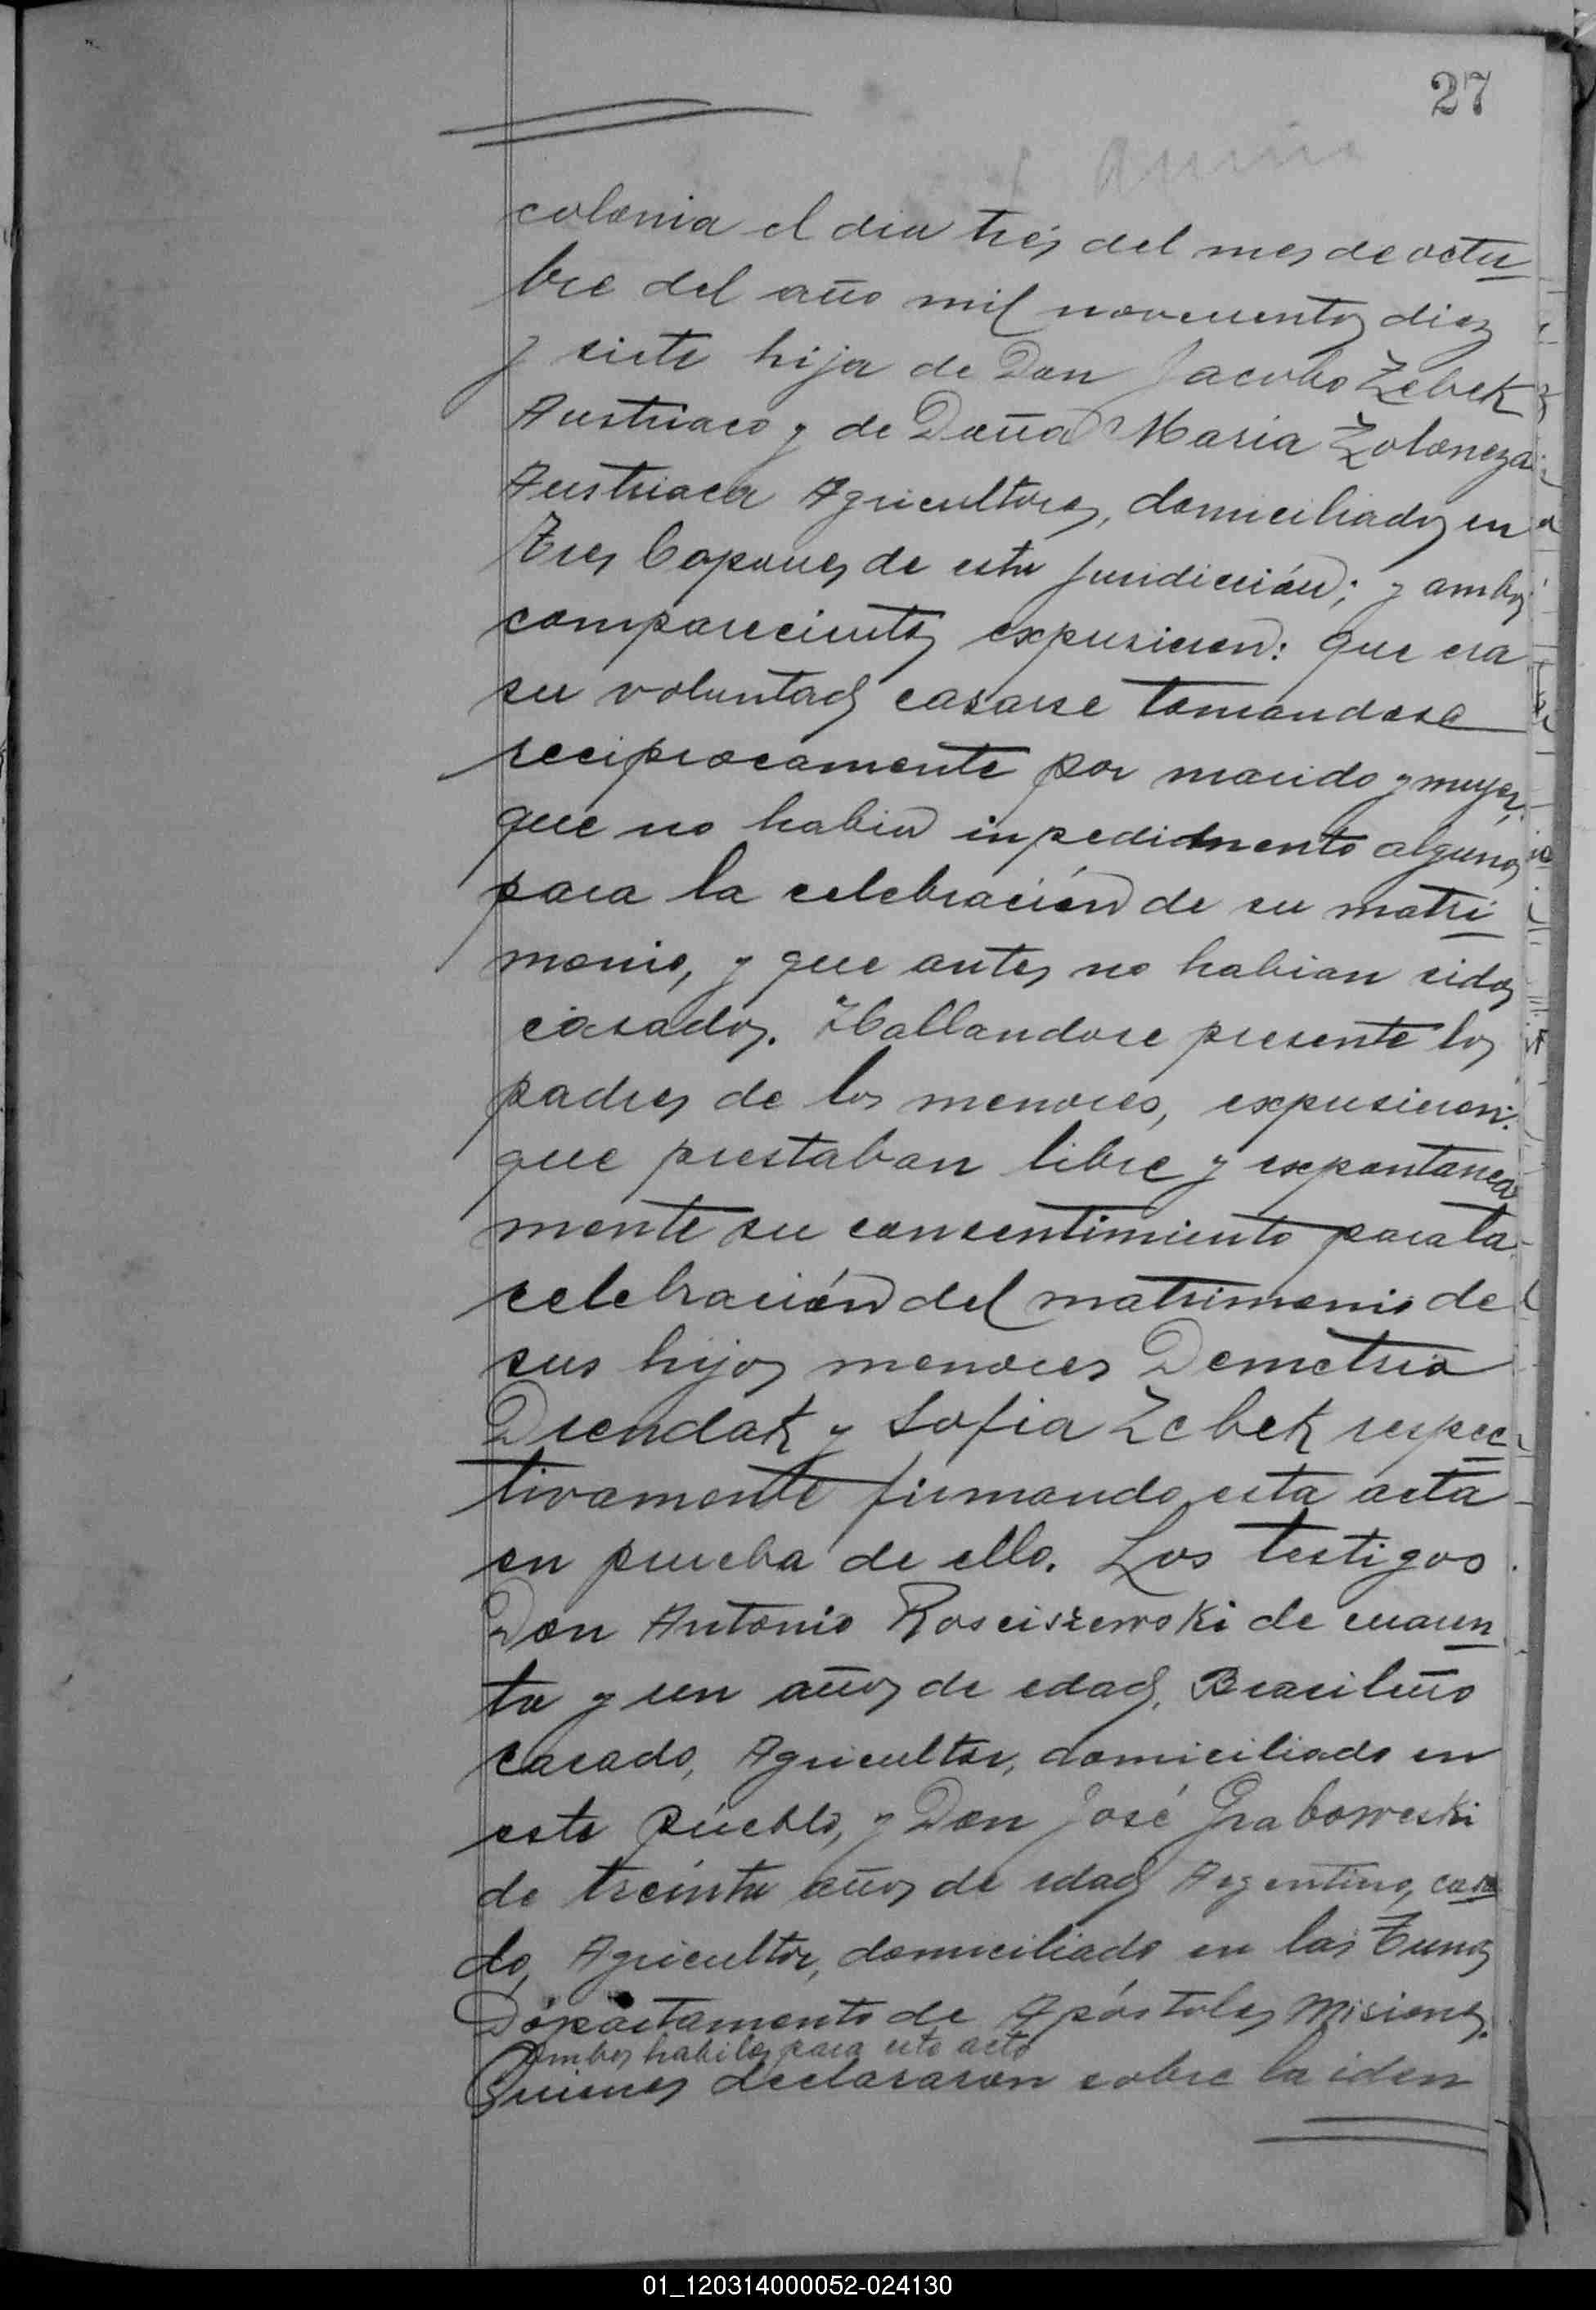 27
colonia el dia tres del mes de octu
bre del año mil novecientos diez
y siete hija de Don Jacobo Zebek
Austriaco y de Doña Maria Zoloneza
Austriaca Agricultores, domiciliados en
Tres Capones de esta juridición; y ambos
comparecientes expusieron: que era
su voluntad casarse tomandose
reciprocamente por marido y mujer,
que no habia inpedimento alguno
para la celebración de su matri
monio, y que antes no habian sidos
casados. Hallandose presente los
padres de los menores, expusieron:
que prestaban libre y expontanea
mente su consentimiento para la
celebración del matrimonio de
sus hijos menores Demetrio
Drendak y Sofia Zebek respec
tivamente firmando esta acta
en prueba de ello. Los testigos
Don Antonio Rosciszewski de cuaren
ta y un años de edad, Brasileño
casado, Agricultor, domiciliado en
este pueblo, y Don José Graboweski
de treinta años de edad Argentino, casa
do, Agricultor, domiciliado en las Tunas
Départamento de Apóstoles Misiones.
Ambos habiles para este acto
Quienes declararon sobre la iden
01_120314000052-024130